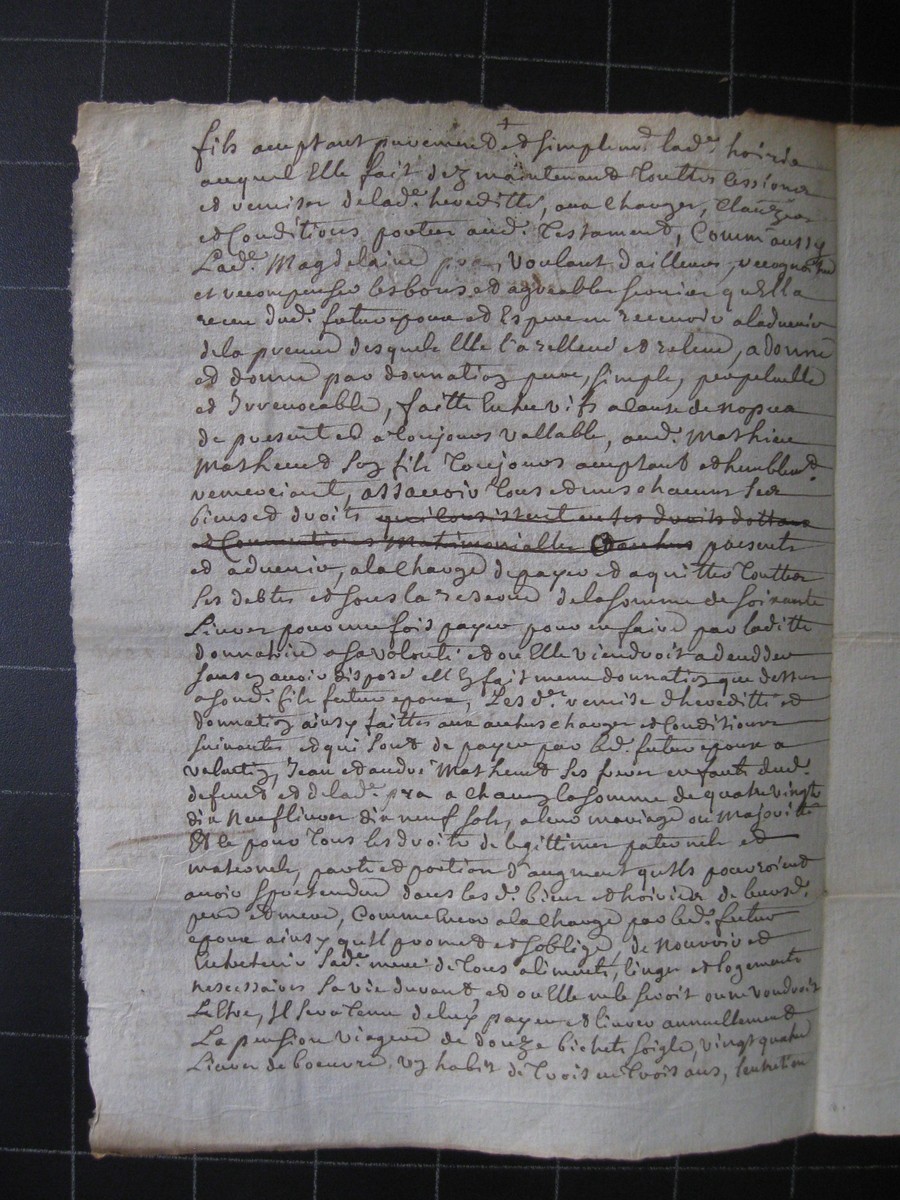 fils acceptant purement et simplemt. lade. hoirie
auquel Elle fait dez maintenant Touttes Cessions
et remises de lade. heredittés, aux charges, clauzes
et Conditions portées aud. Testament, Comm'aussy
Lade. Magdelaine pra, voulant d'ailleurs, recognoitre
et recompenser les bons et agreables services qu'Ella
receu dud. futur epoux et Espere en recevoir a l'advenir
de la preuve desquels Elle l'a rellevé et releve, a donné
et donne par donnation pure, simple, perpetuelle
et Irrevocable, faitte Entre vifs a cause de nopces
de present et a Toujours vallable, aud. Mathieu
Mathevet Son fils Toujours acceptant et humblemt.
remerciant, assavoir Tous et uns chacuns Ses
biens et droits qui Consistent en ses droits dottaux
et Conventions Matrimonialles et autres presents
et advenir, a la charge de payer et aquitter Touttes
Ses debtes et sous la reserve de la somme de soixante
Livres pour une fois payée pour en faire par laditte
donnatrice a sa volonté et ou Elle viendroit a deceder
sans en avoir disposé elle en fait meme donnation que dessus
a sond. fils futur epoux, Lesd. remise d'heredittés et
donnation ainsy faittes aux autres charges et Conditions
suivantes et qui sont de payer par led. futur epoux a
valentin, Jean et andré Mathevet ses freres enfants dud.
defunt et de lade. pra a chacun la somme de quatre vingts
dix Neuf livres dix neuf sols, a leur mariage ou Majorité
Et ce pour Tous les droits de legittimes paternels et
maternels, part et portion d'augment qu'Ils pourroient
avoir et pretendre dans lesd. biens et hoiries de leursd.
pere et mere, Comme Encor a la charge par led. futur
epoux ainsy qu'Il promet et s'oblige, de Nourrir et
Entretenir Sade. mere de Tous aliments, linges et logements
nescessaires Sa vie durant, et ou Elle ne le seroit ou ne voudroit
L'Etre, Il sera Tenu de luy payer et livrer annuellement
La pension viagere de douze bichets soigle, vingt quatre
Livres de boeurre, un habit de Trois en Trois ans, l'entretien